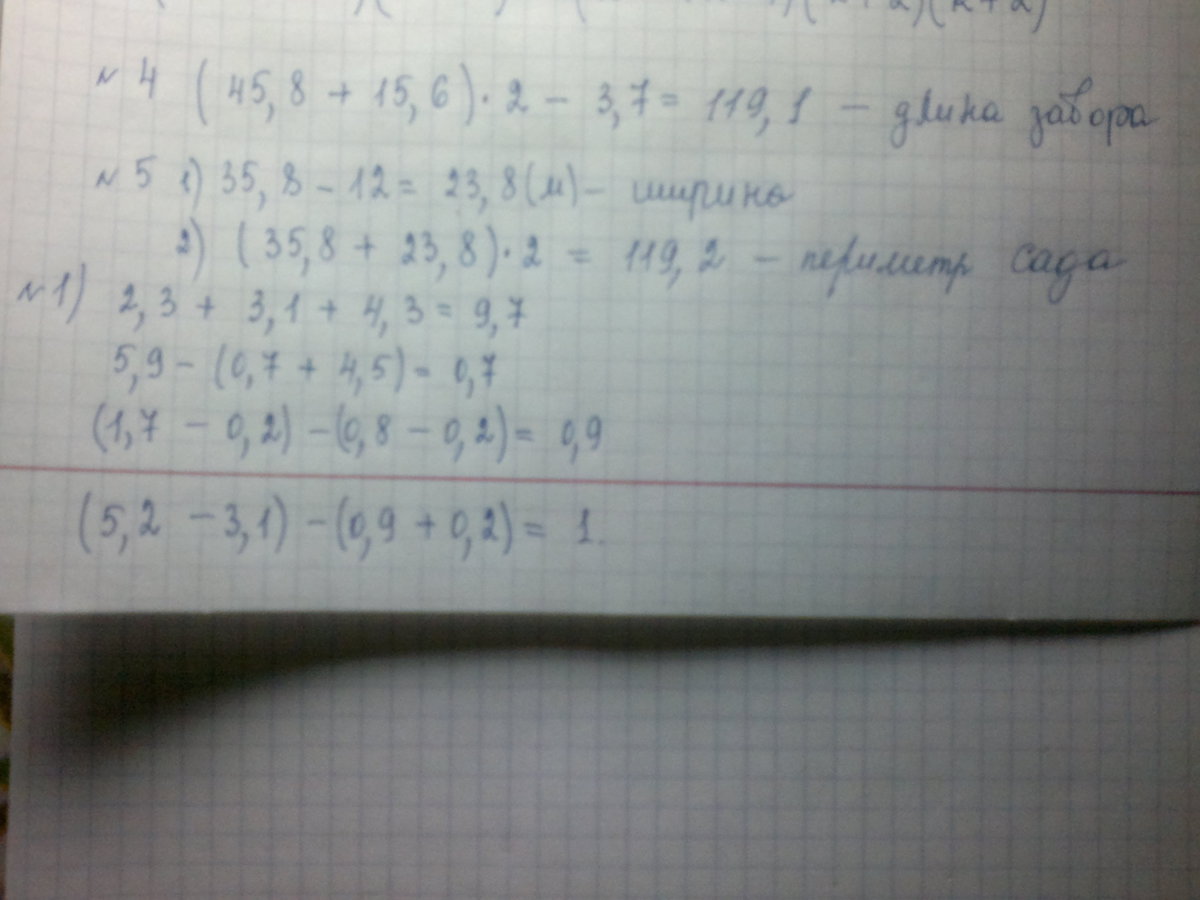 )(k+2)(k+2)
№ 4 (45,8 + 15,6)·2 - 3,7 = 119,1 - длина забора
№ 5 1) 35,8 - 12 = 23,8(м) - ширина
2) (35,8 + 23,8)·2 = 119,2 - периметр сада
№1) 2,3 + 3,1 + 4,3 = 9,7
5,9 - (0,7 + 4,5) = 0,7
(1,7 - 0,2) - (0,8 - 0,2) = 0,9
(5,2 - 3,1) - (0,9 + 0,2) = 1.